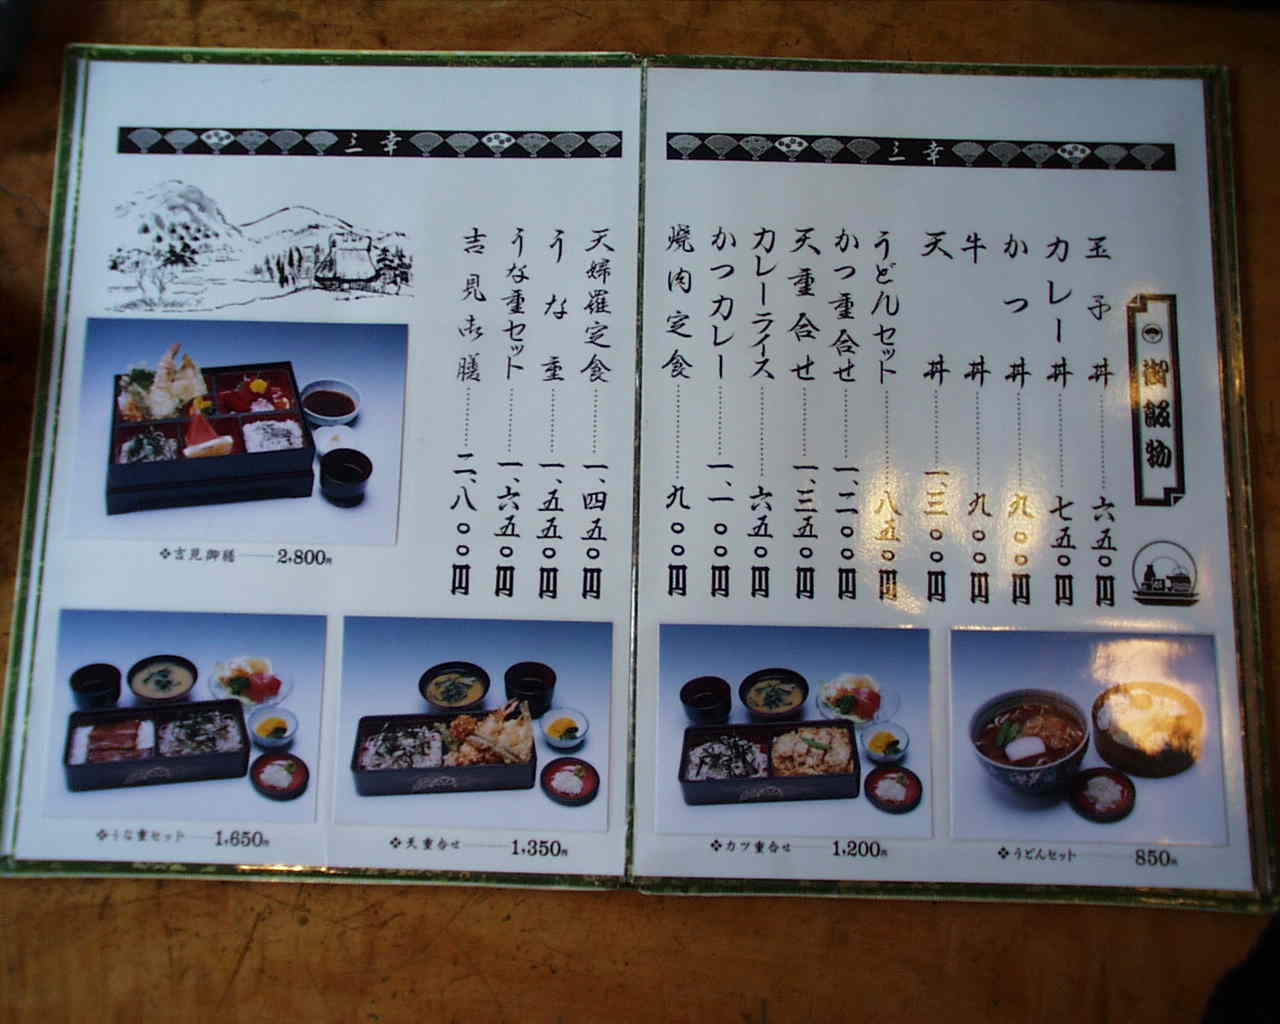 三幸
御飯物
玉子丼 六五〇円
カレー丼 七五〇円
かつ丼 九〇〇円
牛丼 九〇〇円
天丼 一、三〇〇円
うどんセット 八五〇円
かつ重合せ 一、二〇〇円
天重合せ 一、三五〇円
カレーライス 六五〇円
かつカレー 一、一〇〇円
焼肉定食 九〇〇円
カツ重合せ 1,200円
うどんセット 850円
三幸
天婦羅定食 一、四五〇円
うな重 一、五五〇円
うな重セット 一、六五〇円
吉見御膳 二、八〇〇円
吉見御膳 2,800円
うな重セット 1,650円
天重合せ 1,350円